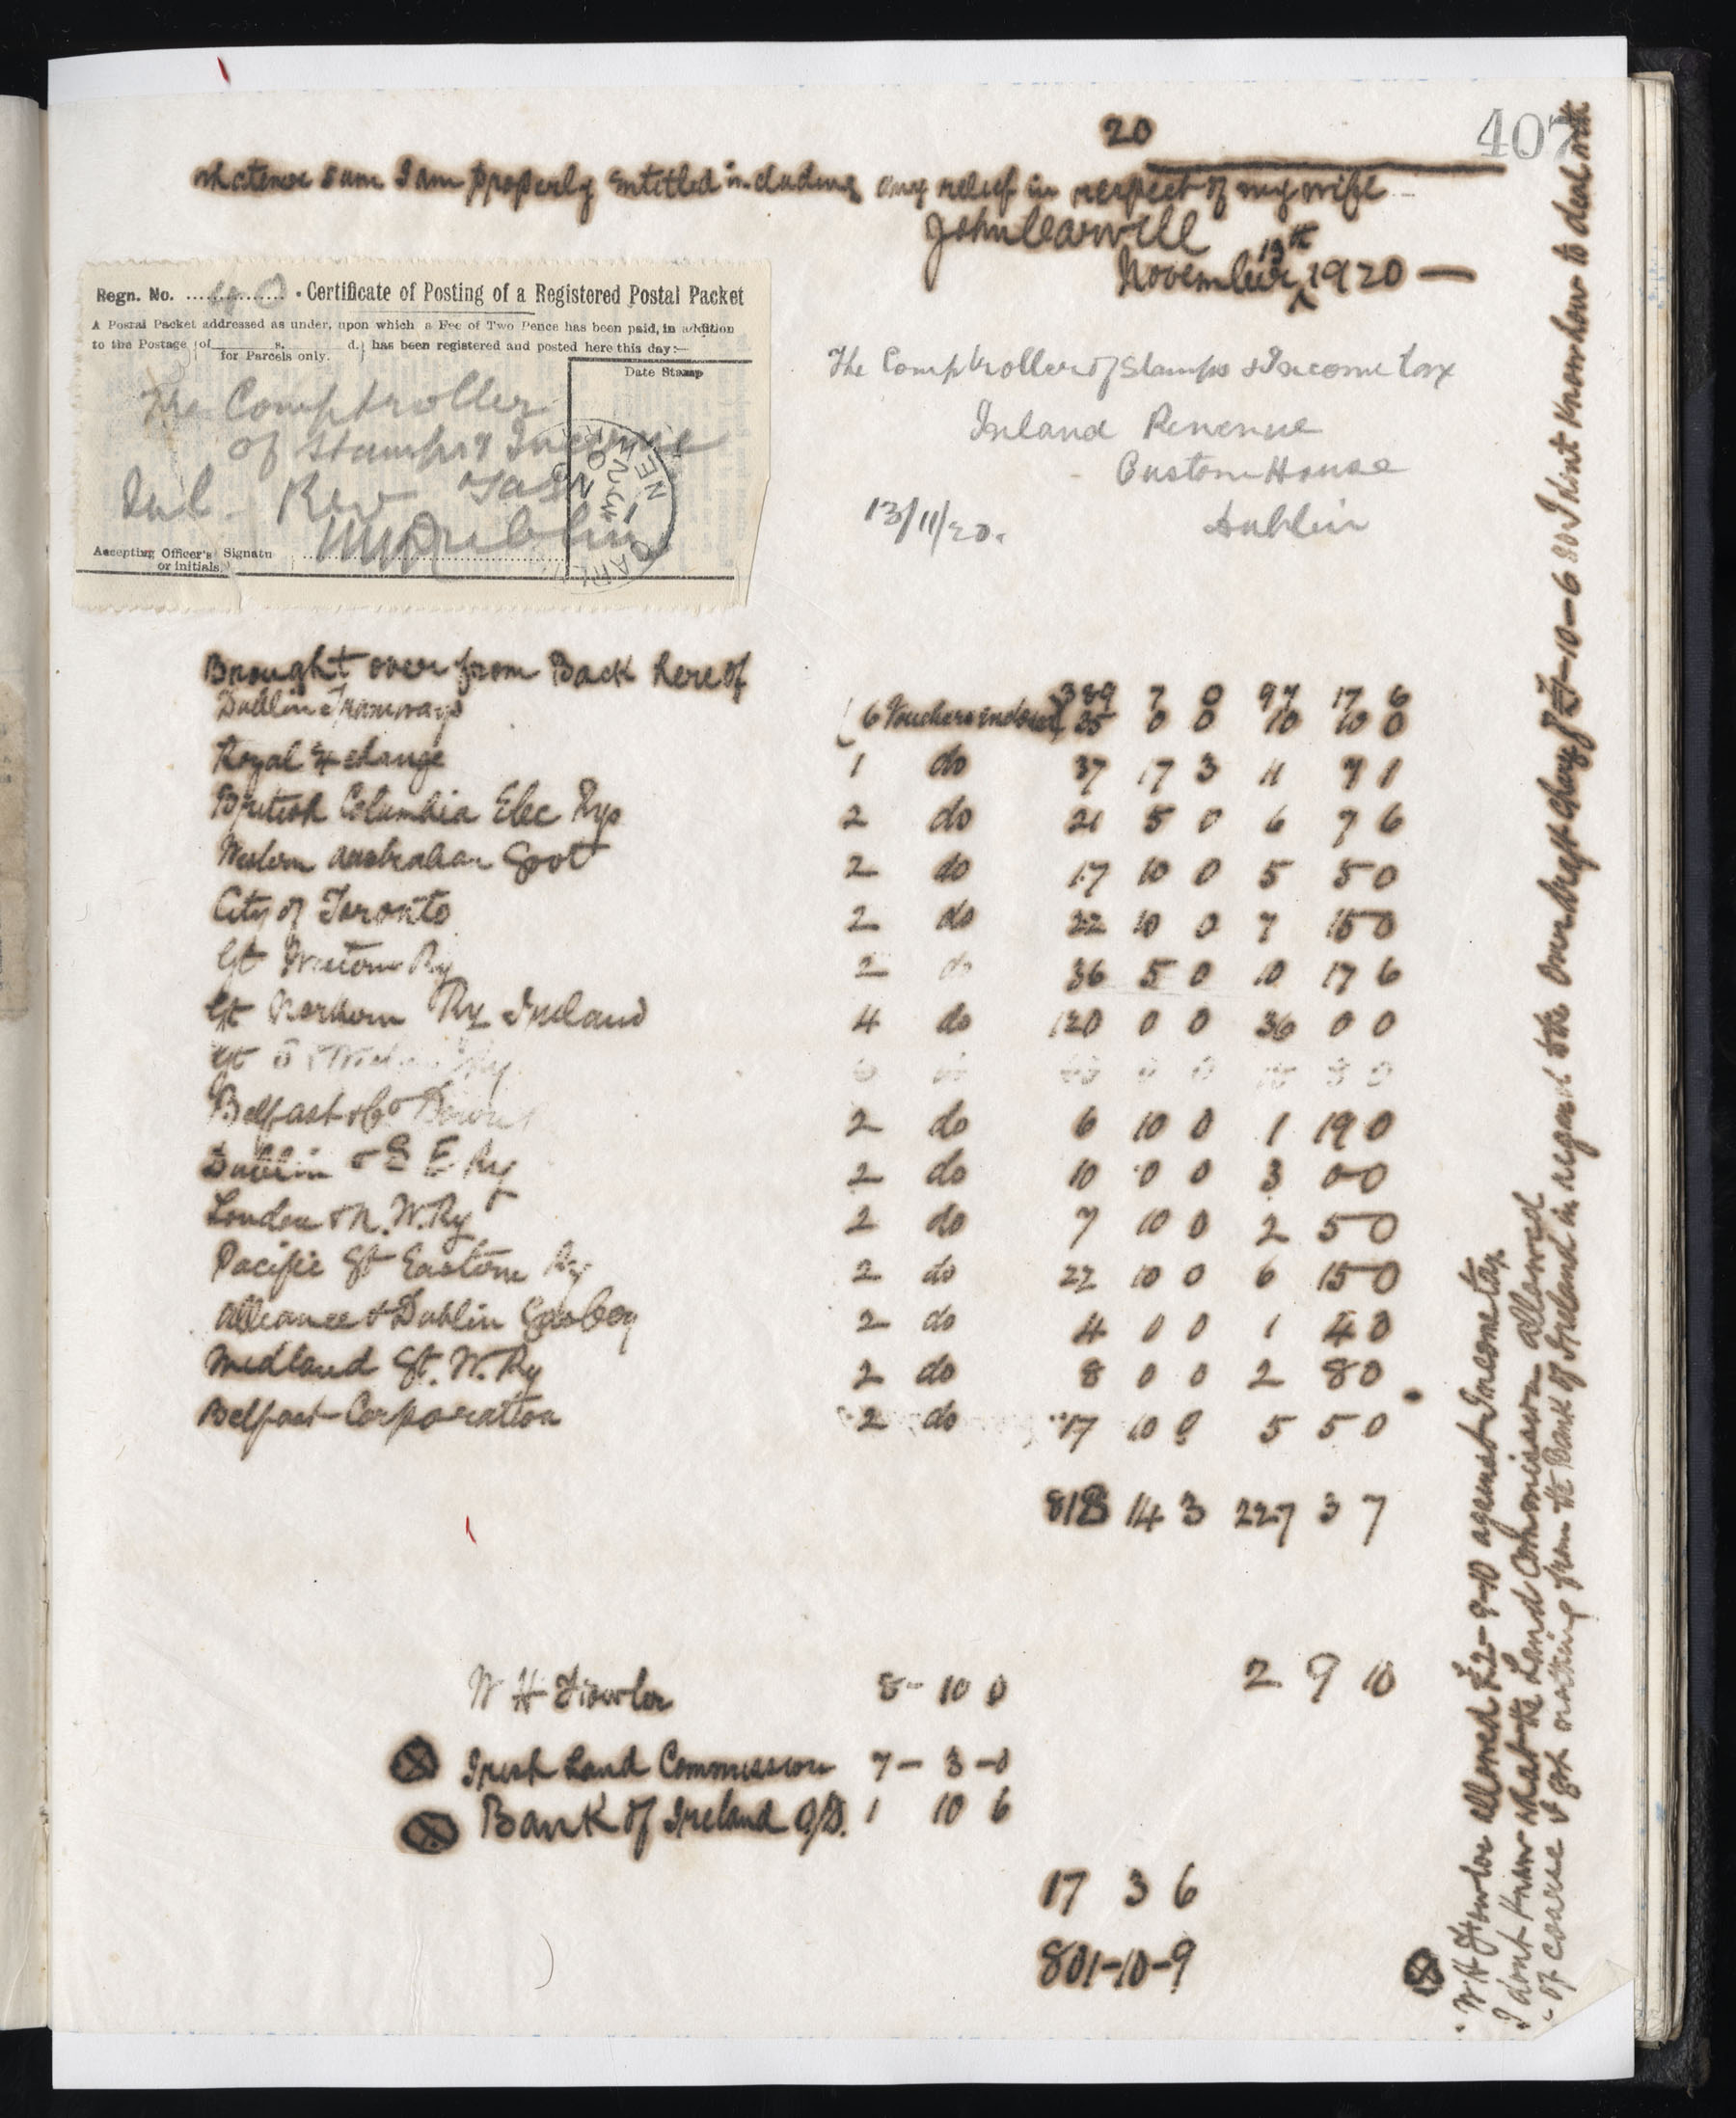 407
20
whatever sum I am properly entitled including any relief in respect of my wife
John Carwill
November 13th 1920 —
Regn. No. 40 Certificate of Posting of a Registered Postal Packet
A Postal Packet addressed as under, upon which a Fee of Two Pence has been paid, in addition
to the Postage {of s. d.} has been registered and posted here this day:—
for Parcels only.
Date Stamp
The Comptroller
of Stamps & Income
Inl. Rev Tax
Dublin
Accepting Officer's Signatu
or initials.
The Comptroller of Stamps & Income tax
Inland Revenue
Custom House
13/11/20. Dublin
Brought over from Back hereof 389 7 0 97 17 6
Dublin Tramways (6 Vouchers inclosed) 35 0 0 10 10 0
Royal Exchange 1 do 37 17 3 11 7 1
British Columbia Elec Rys 2 do 21 5 0 6 7 6
Western Australian Govt 2 do 17 10 0 5 5 0
City of Toronto 2 do 22 10 0 7 15 0
Gt Western Ry 2 do 36 5 0 10 17 6
Gt Northern Ry Ireland 4 do 120 0 0 36 0 0
Gt S & Western Ry 0 0 0
Belfast & Co Down 2 do 6 10 0 1 19 0
Dublin & S E Ry 2 do 10 0 0 3 0 0
London & N. W. Ry 2 do 7 10 0 2 5 0
Pacific Gt Eastern Ry 2 do 22 10 0 6 15 0
Alliance & Dublin Gas Coy 2 do 4 0 0 1 4 0
Midland Gt. W. Ry 2 do 8 0 0 2 8 0
Belfast Corporation 2 do 17 10 0 5 5 0
818 14 3 227 3 7
W H Fowler 8 - 10 0 2 9 10
⊗ Irish Land Commission 7 - 3 - 0
⊗ Bank of Ireland O/D. 1 10 6
17 3 6
801-10-9
⊗ W H Fowler allowed £2-9-10 against Income tax
I dont know what the Land Commission allowed
of course I got nothing from the Bank of Ireland in regard to the Overdraft charge of £1-10-6 so I dont know how to deal with